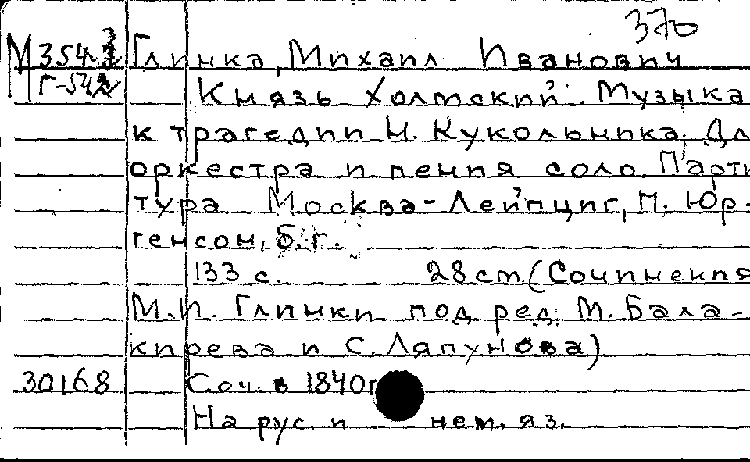 370
М354.3 Глинка, Михаил Иванович
Г-542 Князь Холмский. Музыка
к трагедии Н. Кукольника. Дл
оркестра и пения соло. Парти
тура Москва-Лейпциг, П. Юр-
генсон, б. г.
133 с. 28 cm (Сочинения
М.И. Глинки под ред. М. Бала-
кирева и С. Ляпунова)
30168 Соч. в 1840г
На рус. и нем. яз.